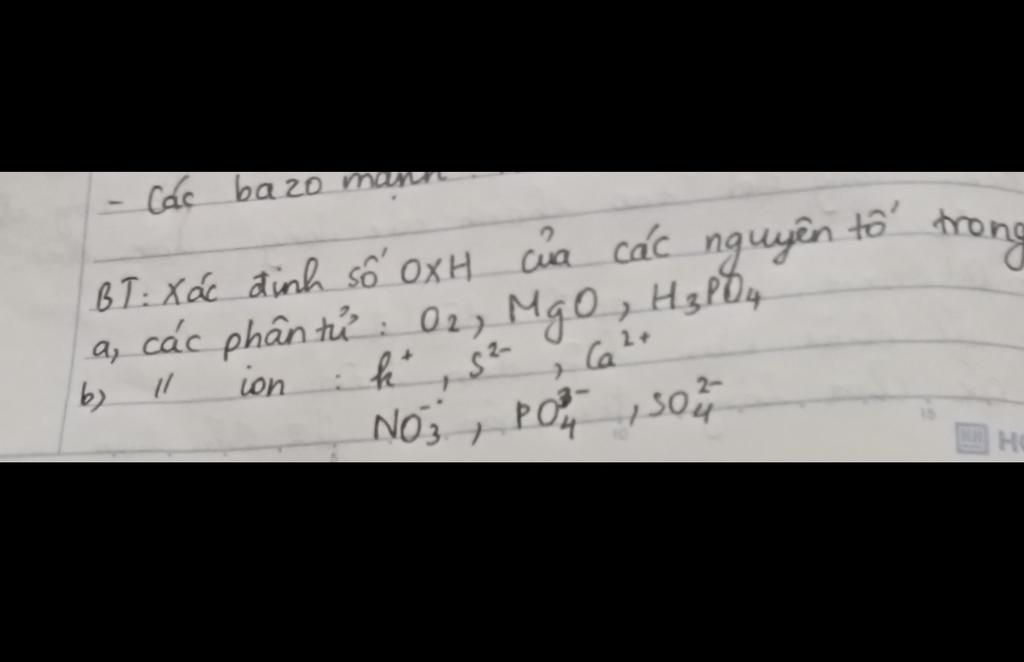 - Các bazo mạnh
BT: Xác định số OXH của các nguyên tố trong
a, các phân tử : O₂, MgO, H₃PO₄
b) // ion : k⁺, S²⁻, Ca²⁺
NO₃⁻, PO₄³⁻, SO₄²⁻